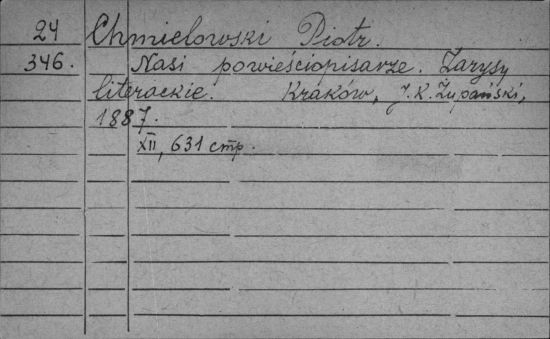 24 Chmielowski Piotr.
346. Nasi powieściopisarze. Zarysy
literackie. Kraków, J. K. Żupański,
1887.
XII, 631 стр.